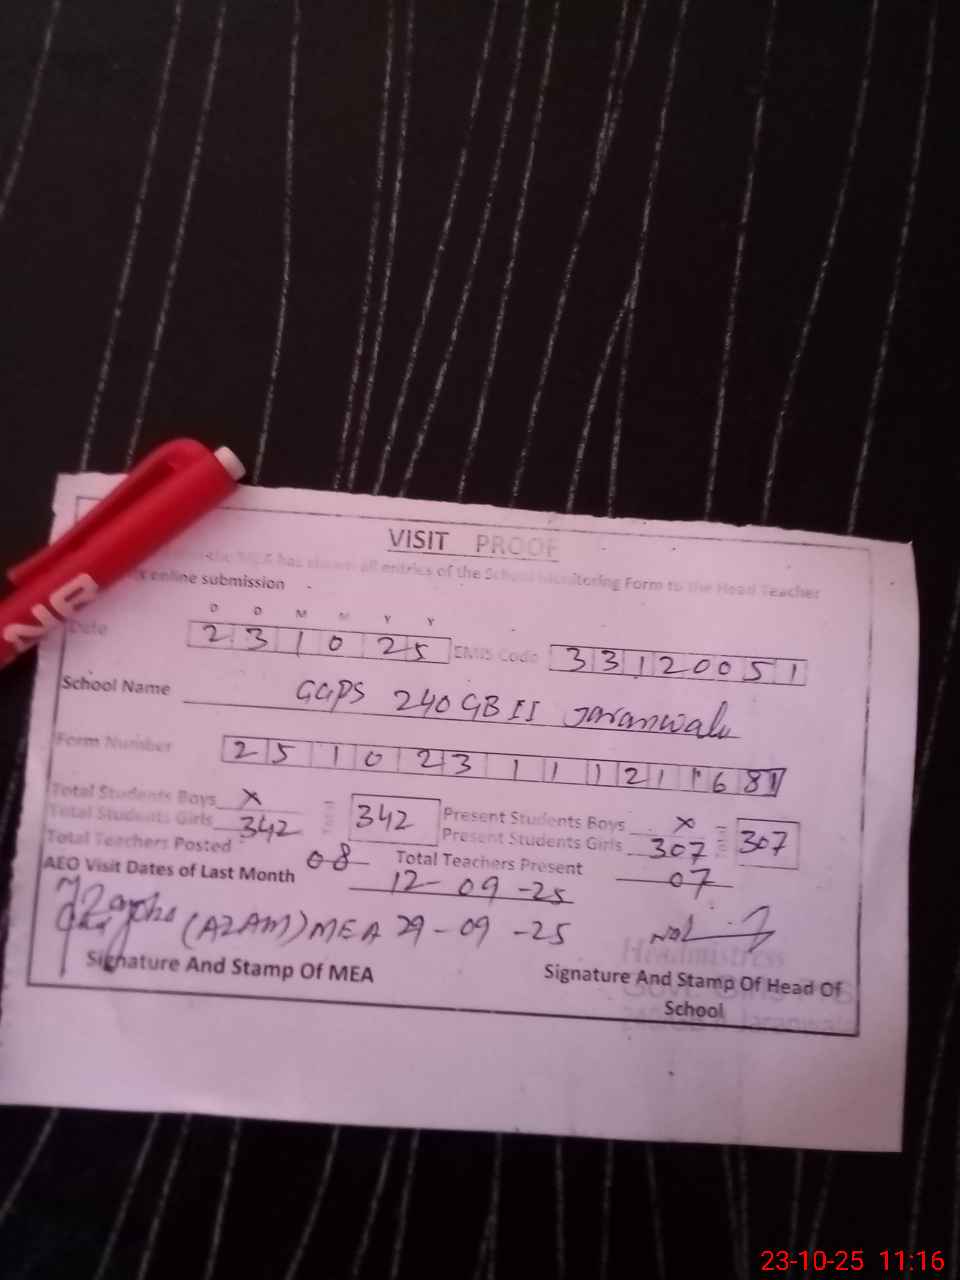 VISIT PROOF
the MEA has shown all entries of the School Monitoring Form to the Head Teacher
online submission
D D M M Y Y
Date 2 3 1 0 2 5 EMIS Code 3 3 1 2 0 0 5 1
School Name GGPS 240 GB II Jaranwala
Form Number 2 5 1 0 2 3 1 1 1 2 1 1 6 8 1
Total Students Boys x 342 Present Students Boys x 307
Total Students Girls 342 Present Students Girls 307
Total Teachers Posted 08 Total Teachers Present 07
AEO Visit Dates of Last Month 12-09-25
(AZAM) MEA 29-09-25
Headmistress
Signature And Stamp Of MEA Signature And Stamp Of Head Of
School
Jaranwala
23-10-25 11:16